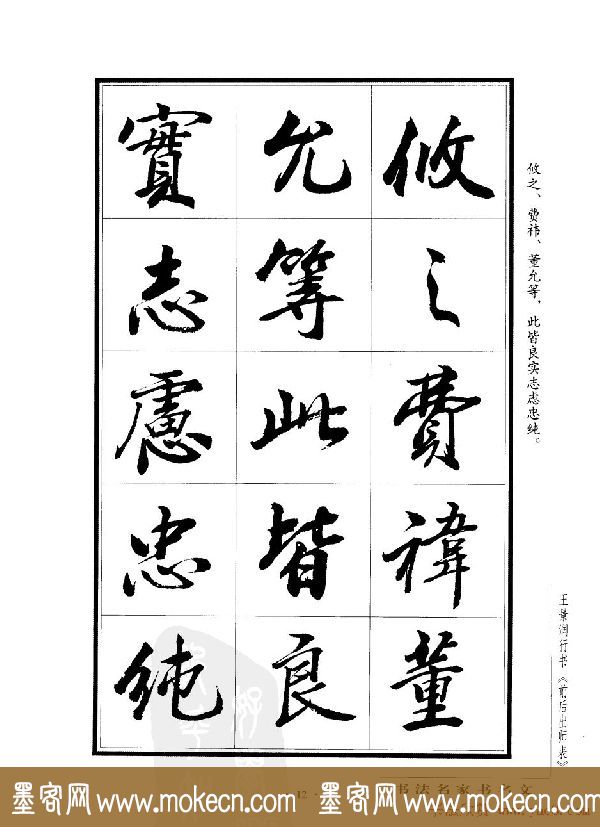 攸之費禕董
允等此皆良
實志慮忠純
攸之、费祎、董允等，此皆良实志虑忠纯。
王景润行书《前后出师表》
·12·
书法名家书名文
墨客网 www.mokecn.com 墨客网 www.mokecn.com